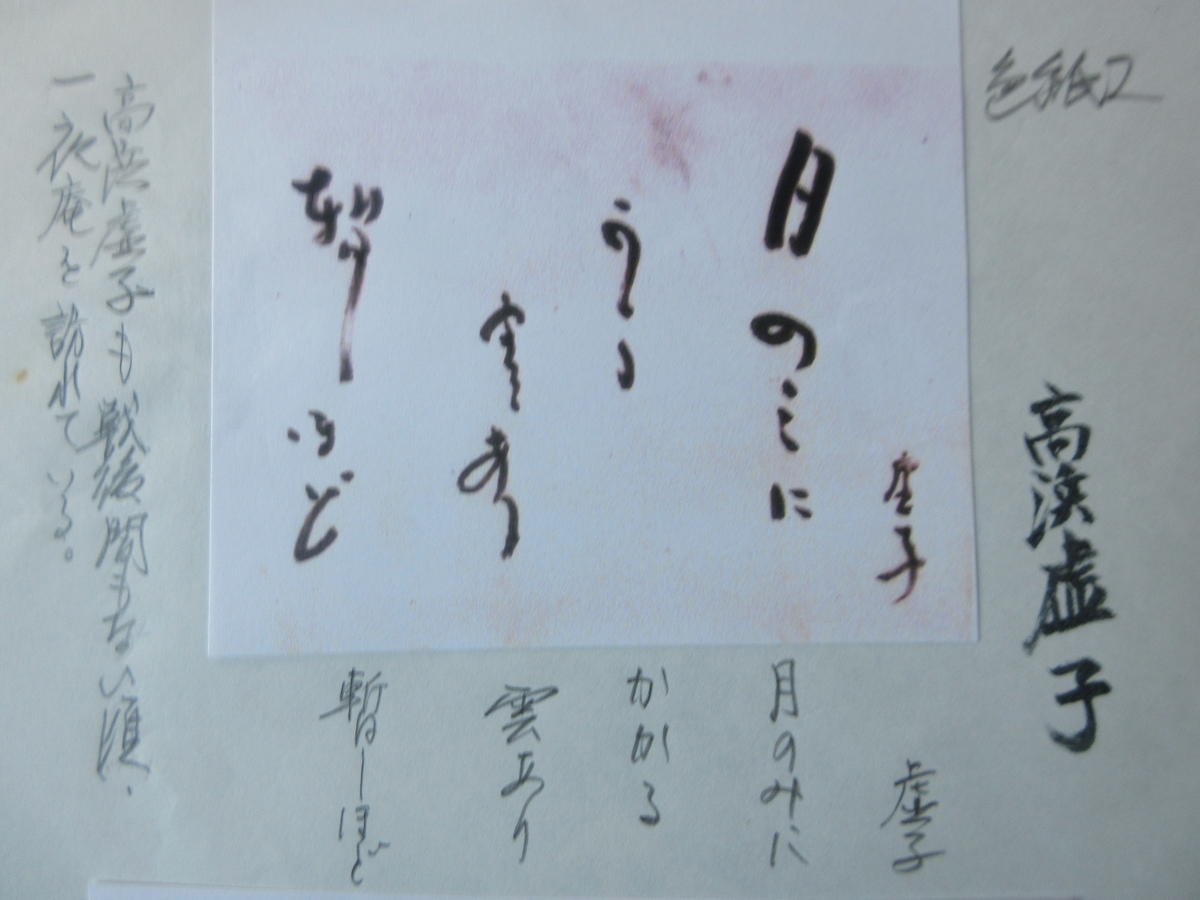 色紙又
高濱虚子
虚子
月のみに
かゝる
雲あり
暫しほど
虚子
月のみに
かかる
雲あり
暫しほど
高浜虚子も戦後間もない頃、
一衣庵を訪れている。